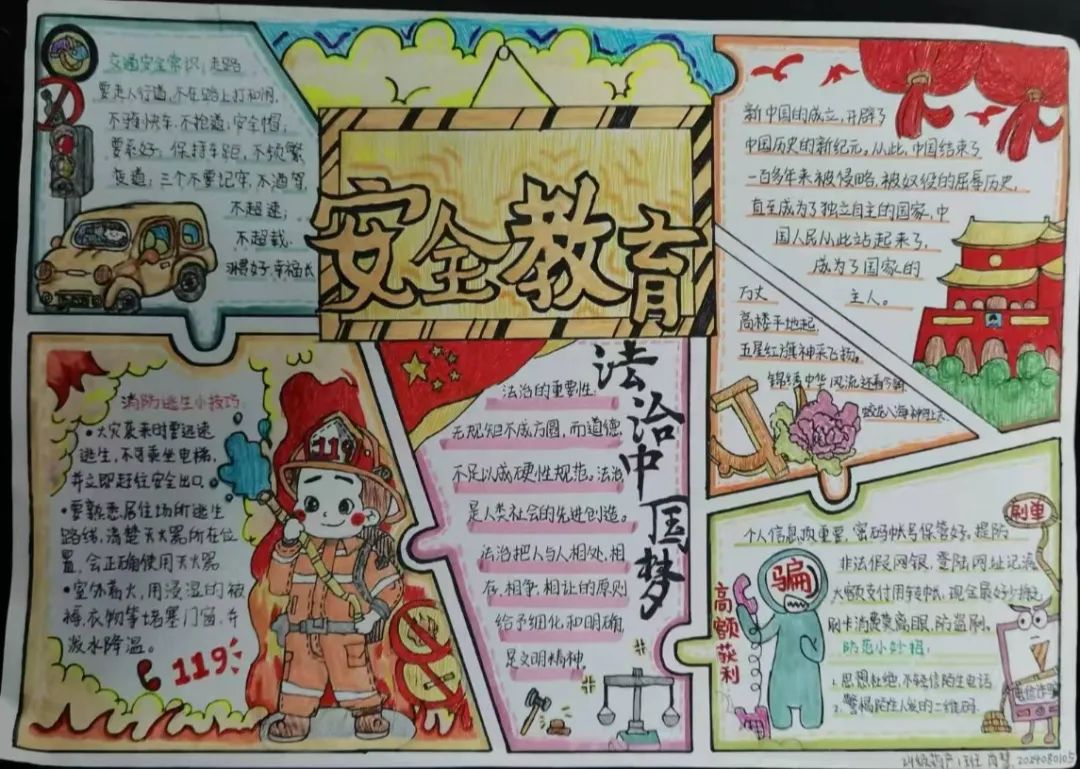 安全教育
交通安全常识：走路
要走人行道，不在路上打和闹，
不强快车，不抢道；安全帽，
要系好；保持车距，不频繁
变道；三个不要记牢，不酒驾，
不超速；
不超载.
习惯好，幸福长
新中国的成立，开辟了
中国历史的新纪元。从此，中国结束了
一百多年来被侵略，被奴役的屈辱历史，
直至成为了独立自主的国家，中
国人民从此站起来了，
成为了国家的
主人。
万丈
高楼平地起，
五星红旗神采飞扬。
锦绣中华风流还看今朝
消防逃生小技巧
•火灾袭来时要迅速
逃生，不可乘坐电梯，
并立即赶往安全出口。
•要熟悉居住场所逃生
路线，清楚灭火器所在位
置，会正确使用灭火器
•室外着火，用浸湿的被
褥、衣物等堵塞门窗，并
泼水降温。
119
119
法治中国梦
法治的重要性：
无规矩不成方圆，而道德
不足以成硬性规范。法治
是人类社会的先进创造。
法治把人与人相处、相
存、相争、相让的原则
给予细化和明确
是文明精神。
刷单
个人信息顶重要，密码帐号保管好，提防
非法假网银，登陆网址记清
大额支付用转帐，现金最好少搬
刷卡消费莫离眼，防盗刷。
防范小妙招：
1.思想杜绝，不轻信陌生电话
2.警惕陌生人发的二维码.
骗
高额获利
电信诈骗